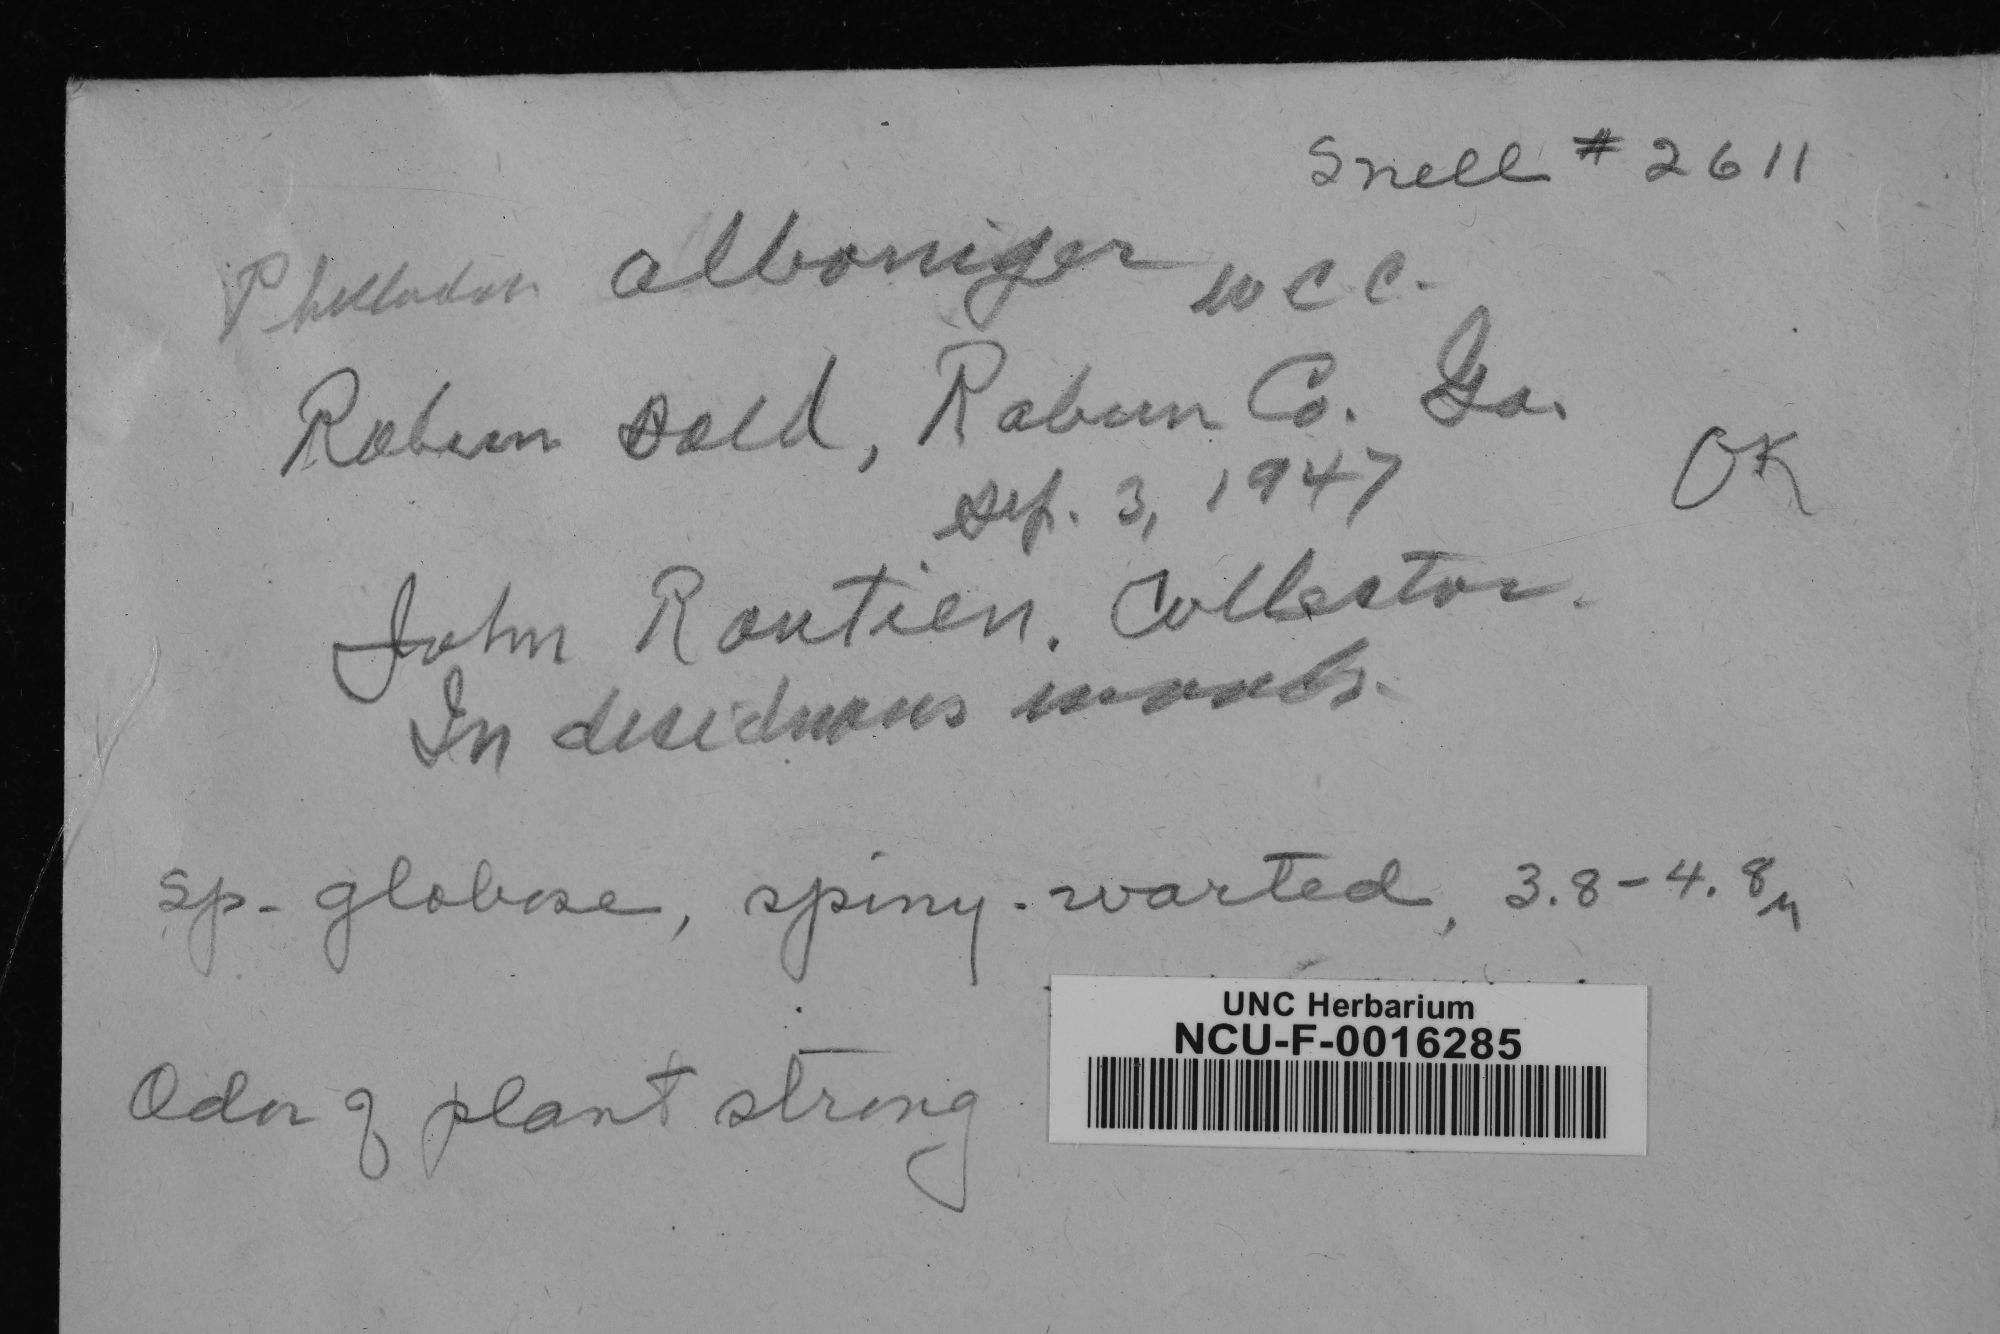 Snell # 2611
Phellodon alboniger WCC.
Rabun Bald, Rabun Co. Ga.
Sep. 3, 1947
OK
John Routien. Collector.
In desiduous woods.
sp- globose, spiny-warted, 3.8-4.8µ
UNC Herbarium
NCU-F-0016285
Odor of plant strong